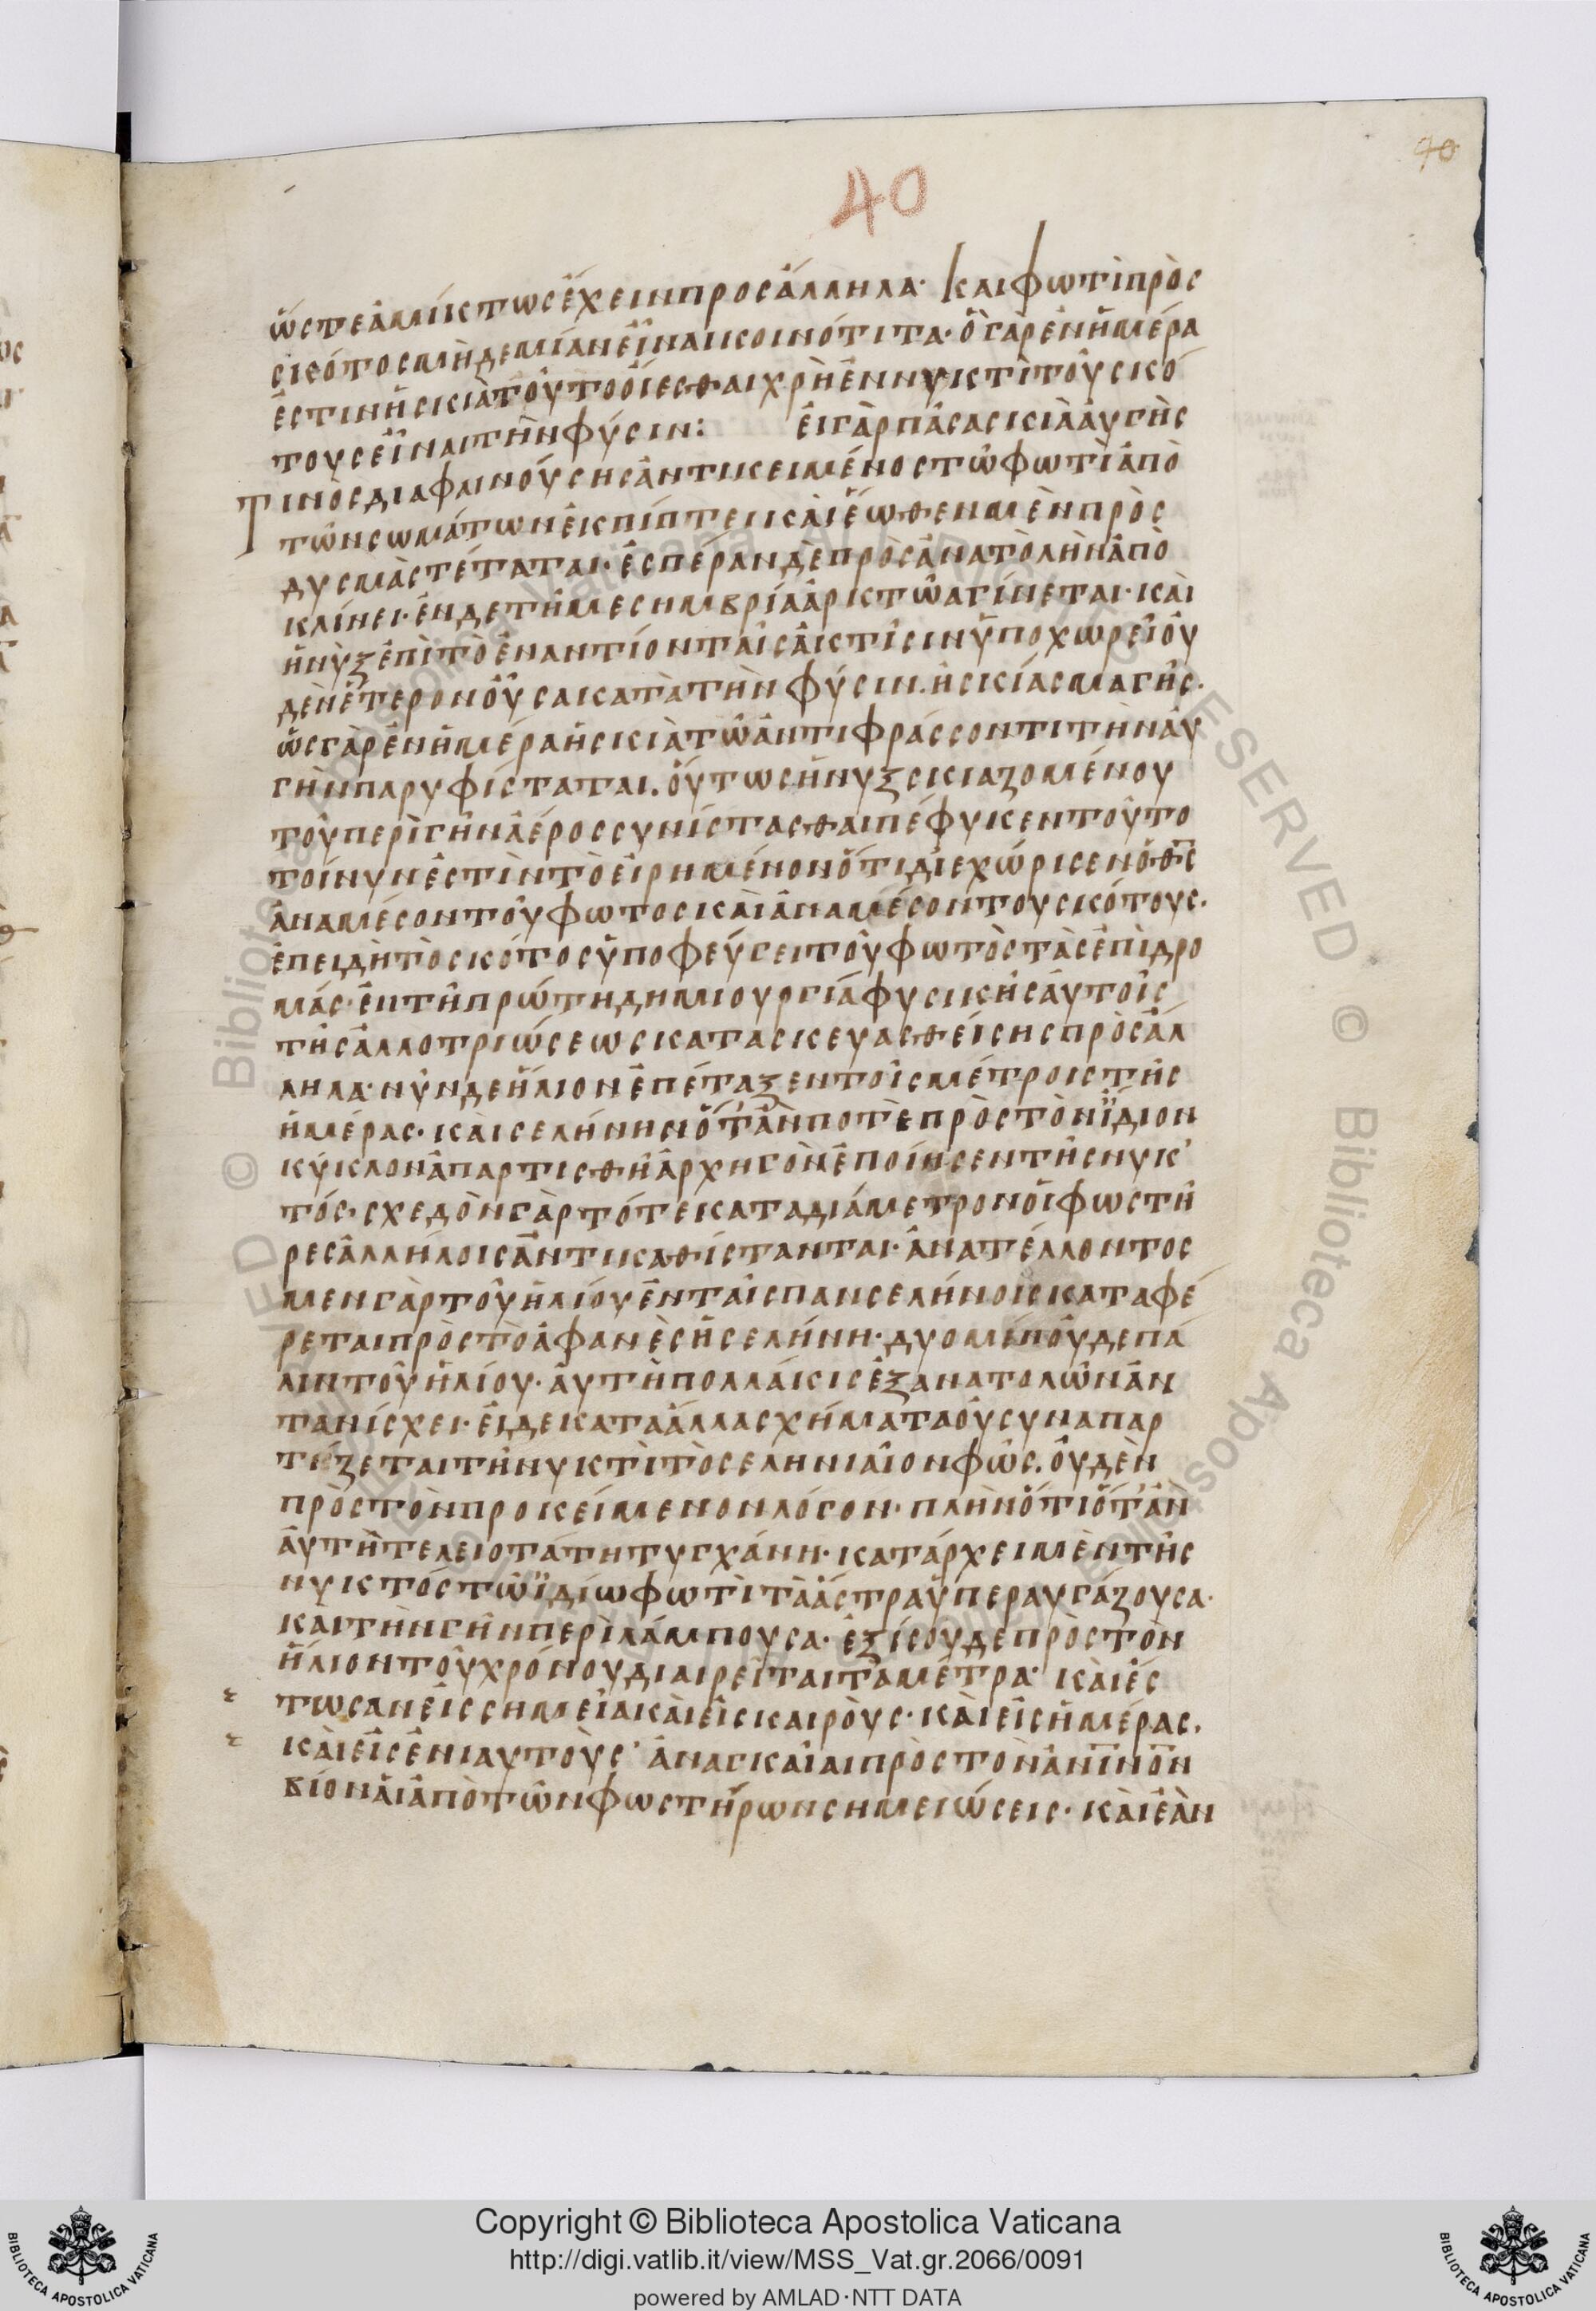 40
40
ὥστε ἀμίκτως ἔχειν προς ἄλληλα· Καὶ φωτὶ πρὸς
σκότος μὴδεμίαν εἶναι κοινότιτα· ὃ γὰρ ἐν ἡμέρα
ἐστιν ἡ σκιὰ τοῦτο οἴεσθαι χρὴ ἐν νυκτὶ τοῦ σκό
τους εἶναι τὴν φύσιν: ἐι γὰρ πᾶσα σκιὰ ἀυγῆς
Τινὸς διαφαινούσης ἀντικειμένος τῶ φωτὶ ἀπὸ
τῶν σωμάτων ἐκπίπτει καὶ ἕωθεν μὲν πρὸς
δυσμὰς τέταται· ἑσπέραν δὲ πρὸς ἀνατὸλὴν ἀπὸ
κλίνει· ἐν δε τῆ μεσημβρία ἀρκτῶα γίνεται· καὶ
ἡ νὺξ ἐπὶ τὸ ἐναντίον ταῖς ἀκτῖσιν ὑποχωρεῖ οὐ
δὲν ἕτερον οὖσα κατὰ τὴν φύσιν. ἢ σκίασμα γῆς·
ὡς γὰρ ἐν ἡμέρα ἡ σκιὰ τῶ ἀντιφράσσοντι τὴν ἀυ
γὴν παρυφίσταται. οὕτως ἡ νυξ σκιαζομένου
τοῦ περὶ γῆν ἀέρος συνίστασθαι πέφυκεν τοῦτο
τοίνυν ἐστὶν τὸ ἐιρημένον ὅτι διεχώρισεν ὁ θς
ἀναμέσον τοῦ φωτος καὶ ἀναμέσον του σκότους.
ἐπειδὴ τὸ σκότος ὑποφεύγει τοῦ φωτὸς τὰς ἐπὶδρο
μάς· ἐν τῆ πρώτη δημιουργία φυσικῆς ἀυτοῖς
τῆς ἀλλοτριώσεως κατασκευασθείσης πρὸς ἄλ
ληλα· νῦν δε ἥλιον ἐπέταξεν τοῖς μέτροις τῆς
ἡμέρας· καὶ σελήνην ὅτ’ ἂν ποτὲ πρὸς τὸν ἴδιον
κύκλον ἀπαρτισθῆ ἀρχηγὸν ἐποίησεν τῆς νυκ
τός· σχεδὸν γὰρ τότε καταδιάμετρον οἱ φωστῆ
ρες ἀλλήλοις ἀντικαθίστανται· ἀνατέλλοντος
μεν γὰρ τοῦ ἡλίου ἐν ταῖς πανσελήνοις καταφέ
ρεται πρὸς τὸ ἀφανὲς ἡ σελήνη· δυομένου δε πά
λιν τοῦ ἡλίου· ἀυτὴ πολλάκις ἐξ ἀνατολῶν ἀν
τανίσχει· ἐι δε κατα ἄλλα σχήματα οὐ συναπαρ
τίζεται τῆ νυκτὶ τὸ σεληνιαῖον φῶς. οὐδὲν
πρὸς τὸν προκείμενον λόγον· πλὴν ὅτι ὅτ’ ἂν
ἀυτὴ τελειοτάτη τυγχάνη· κατάρχει μὲν τῆς
νυκτός τῶ ϊδίω φωτὶ τὰ ἄστρα ὑπεραυγάζουσα·
και τὴν γῆν περὶλάμπουσα· ἐξίσου δε πρὸς τὸν
ἥλιον τοῦ χρόνου διαιρεῖται τὰ μέτρα· καὶ ἔσ
τωσαν εἰς σημεῖα καὶ εἰς καιρὸυς· καὶ εἰς ἡμέρας.
καὶ εἰς ἐνιαυτοὺς· ἀναγκαῖαι πρὸς τὸν ἀνινον
βίον ἁι ἀπὸ τῶν φωστήρων σημειώσεις· καὶ ἐὰν
Copyright © Biblioteca Apostolica Vaticana
http://digi.vatlib.it/view/MSS_Vat.gr.2066/0091
powered by AMLAD·NTT DATA
BIBLIOTECA APOSTOLICA VATICANA
BIBLIOTECA APOSTOLICA VATICANA